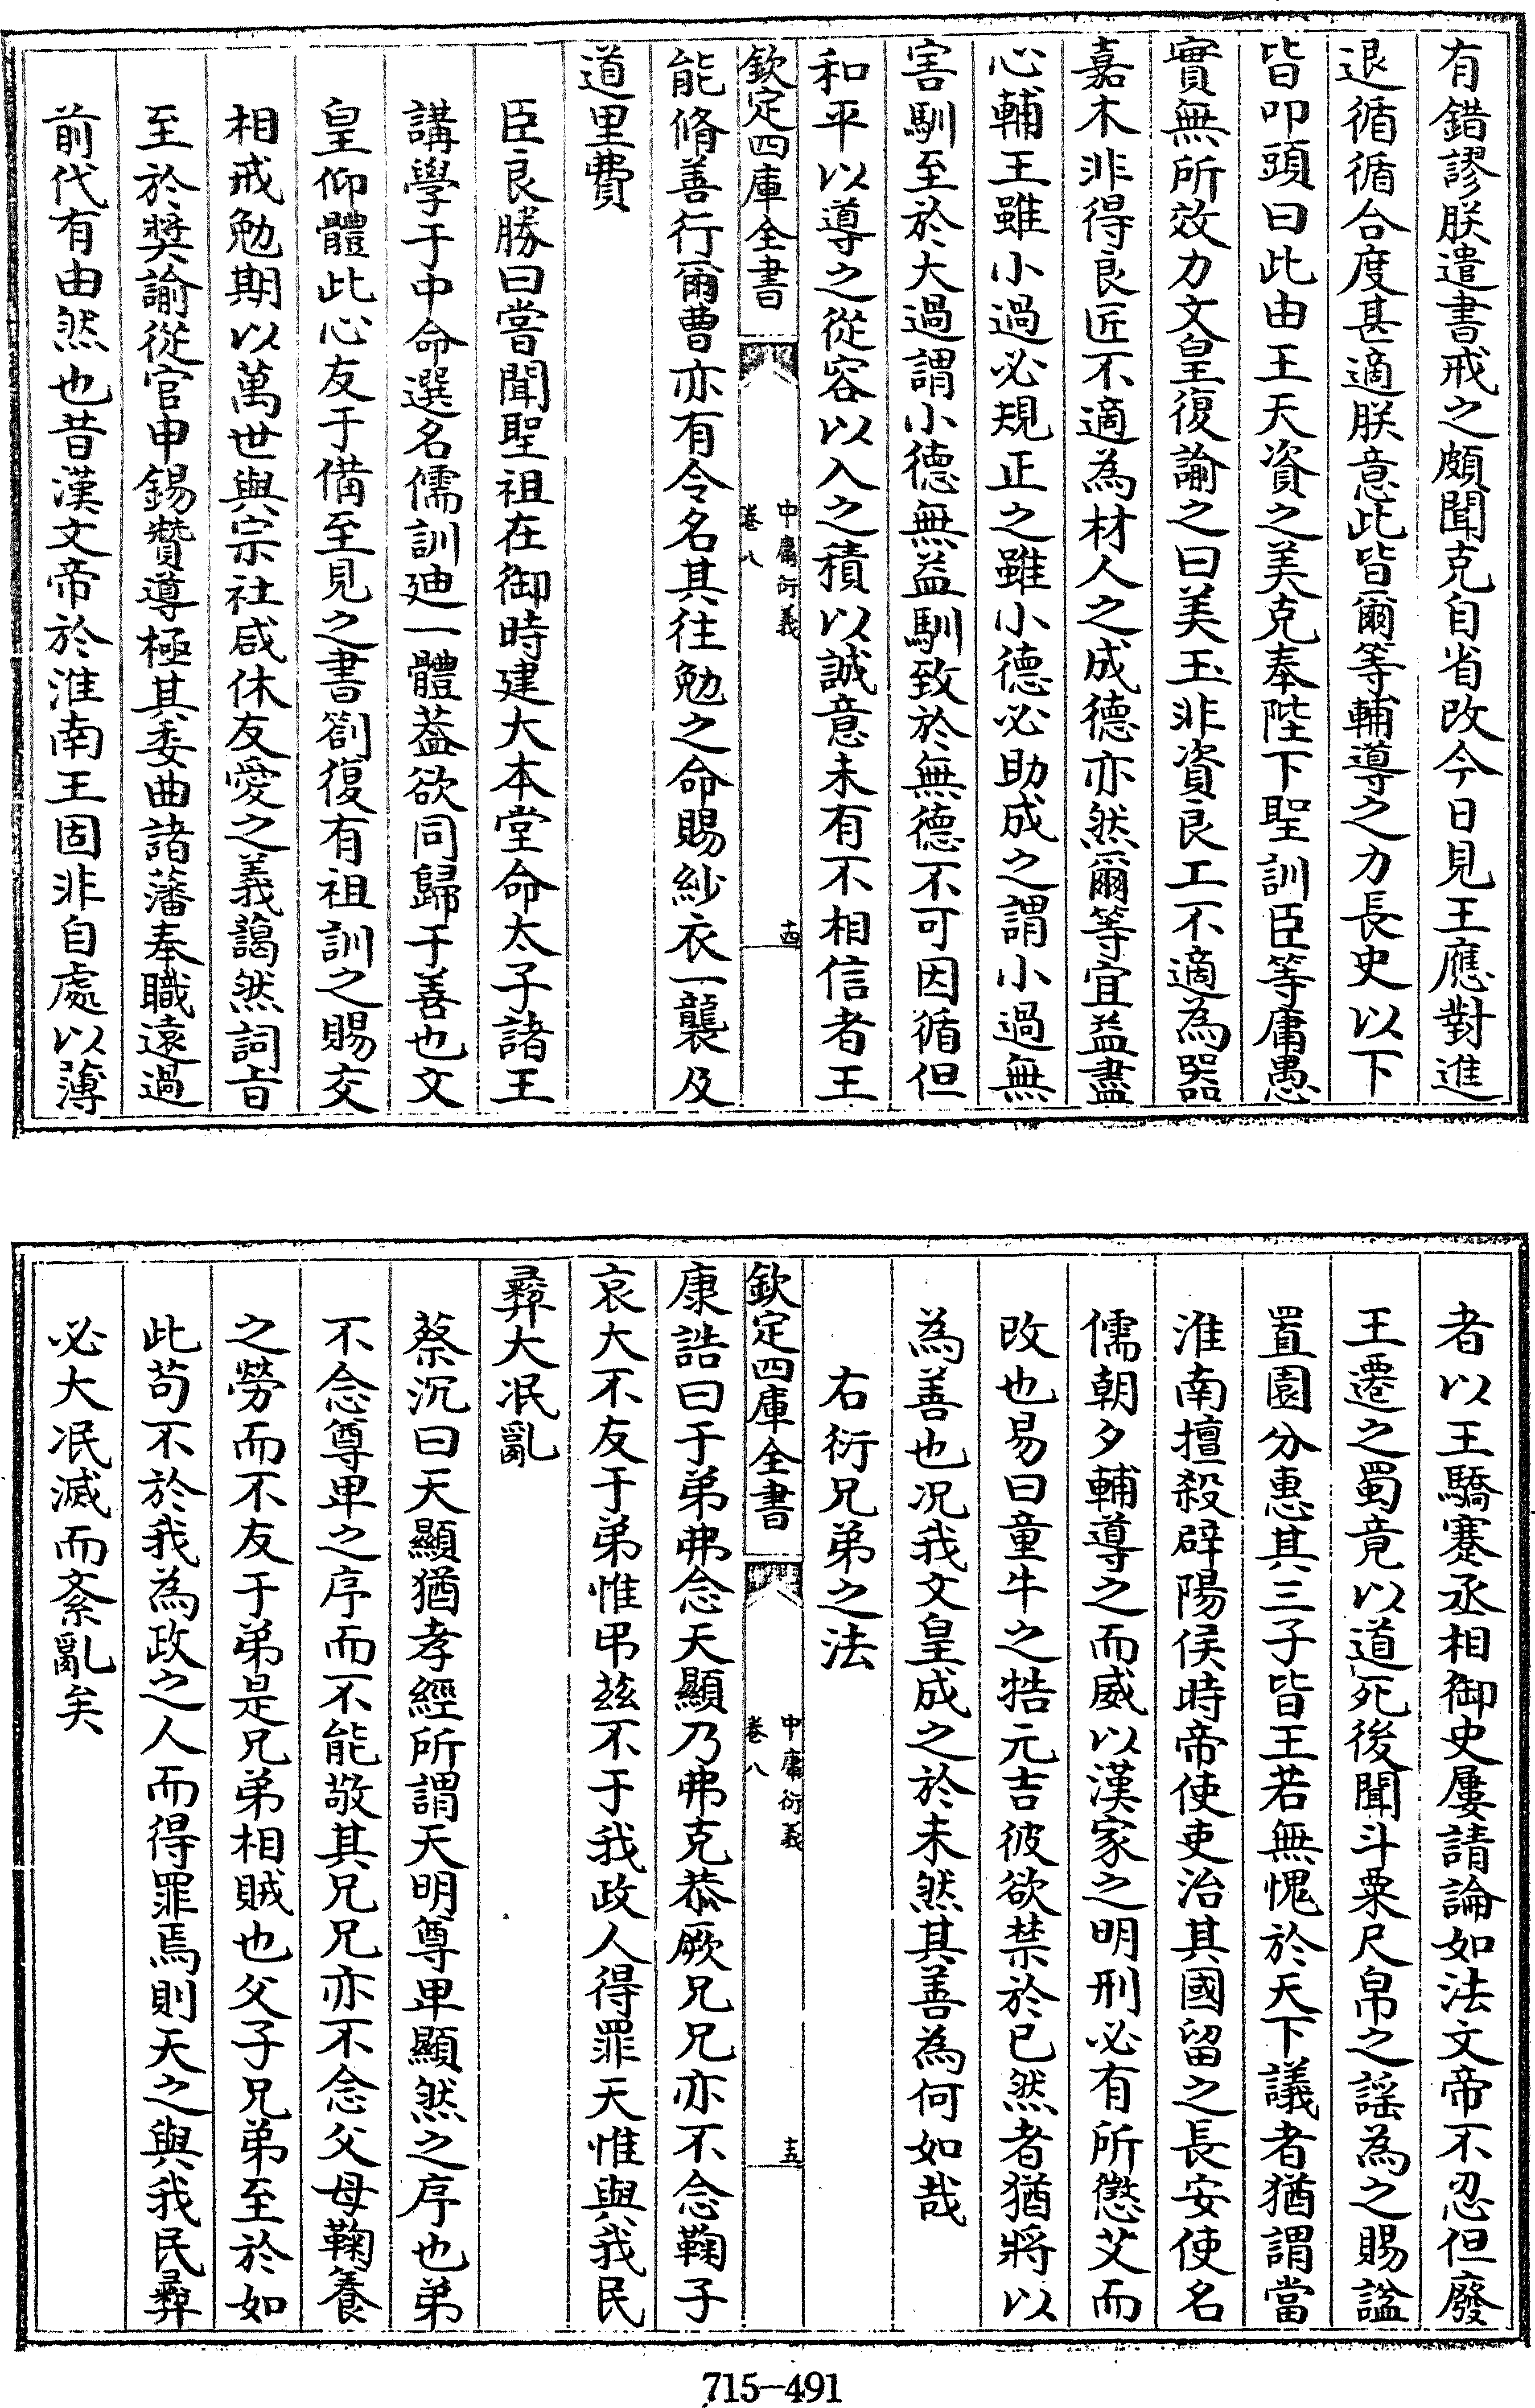 有錯謬朕遣書戒之頗聞克自省改今日見王應對進
退循循合度甚適朕意此皆爾等輔導之力長史以下
皆叩頭曰此由王天資之美克奉陛下聖訓臣等庸愚
實無所效力文皇復諭之曰美玉非資良工不適為器
嘉木非得良匠不適為材人之成德亦然爾等宜益盡
心輔王雖小過必規正之雖小德必助成之謂小過無
害馴至於大過謂小德無益馴致於無德不可因循但
和平以導之從容以入之積以誠意未有不相信者王
欽定四庫全書
中庸衍義
卷八
十四
能脩善行爾曹亦有令名其往勉之命賜紗衣一襲及
道里費
臣良勝曰嘗聞聖祖在御時建大本堂命太子諸王
講學于中命選名儒訓廸一體葢欲同歸于善也文
皇仰體此心友于備至見之書劄復有祖訓之賜交
相戒勉期以萬世與宗社咸休友愛之義藹然詞㫖
至於奬諭從官申錫贊導極其委曲諸藩奉職遠過
前代有由然也昔漢文帝於淮南王固非自處以薄
者以王驕蹇丞相御史屢請論如法文帝不忍但廢
王遷之蜀竟以道死後聞斗粟尺帛之謡為之賜諡
置園分惠其三子皆王若無愧於天下議者猶謂當
淮南擅殺辟陽侯時帝使吏治其國留之長安使名
儒朝夕輔導之而威以漢家之明刑必有所懲艾而
改也易曰童牛之牿元吉彼欲禁於已然者猶將以
為善也况我文皇成之於未然其善為何如哉
右衍兄弟之法
欽定四庫全書
中庸衍義
卷八
十五
康誥曰于弟弗念天顯乃弗克恭厥兄兄亦不念鞠子
哀大不友于弟惟弔兹不于我政人得罪天惟與我民
彞大泯亂
蔡沉曰天顯猶孝經所謂天明尊卑顯然之序也弟
不念尊卑之序而不能敬其兄兄亦不念父母鞠養
之勞而不友于弟是兄弟相賊也父子兄弟至於如
此苟不於我為政之人而得罪焉則天之與我民彞
必大泯滅而紊亂矣
715-491